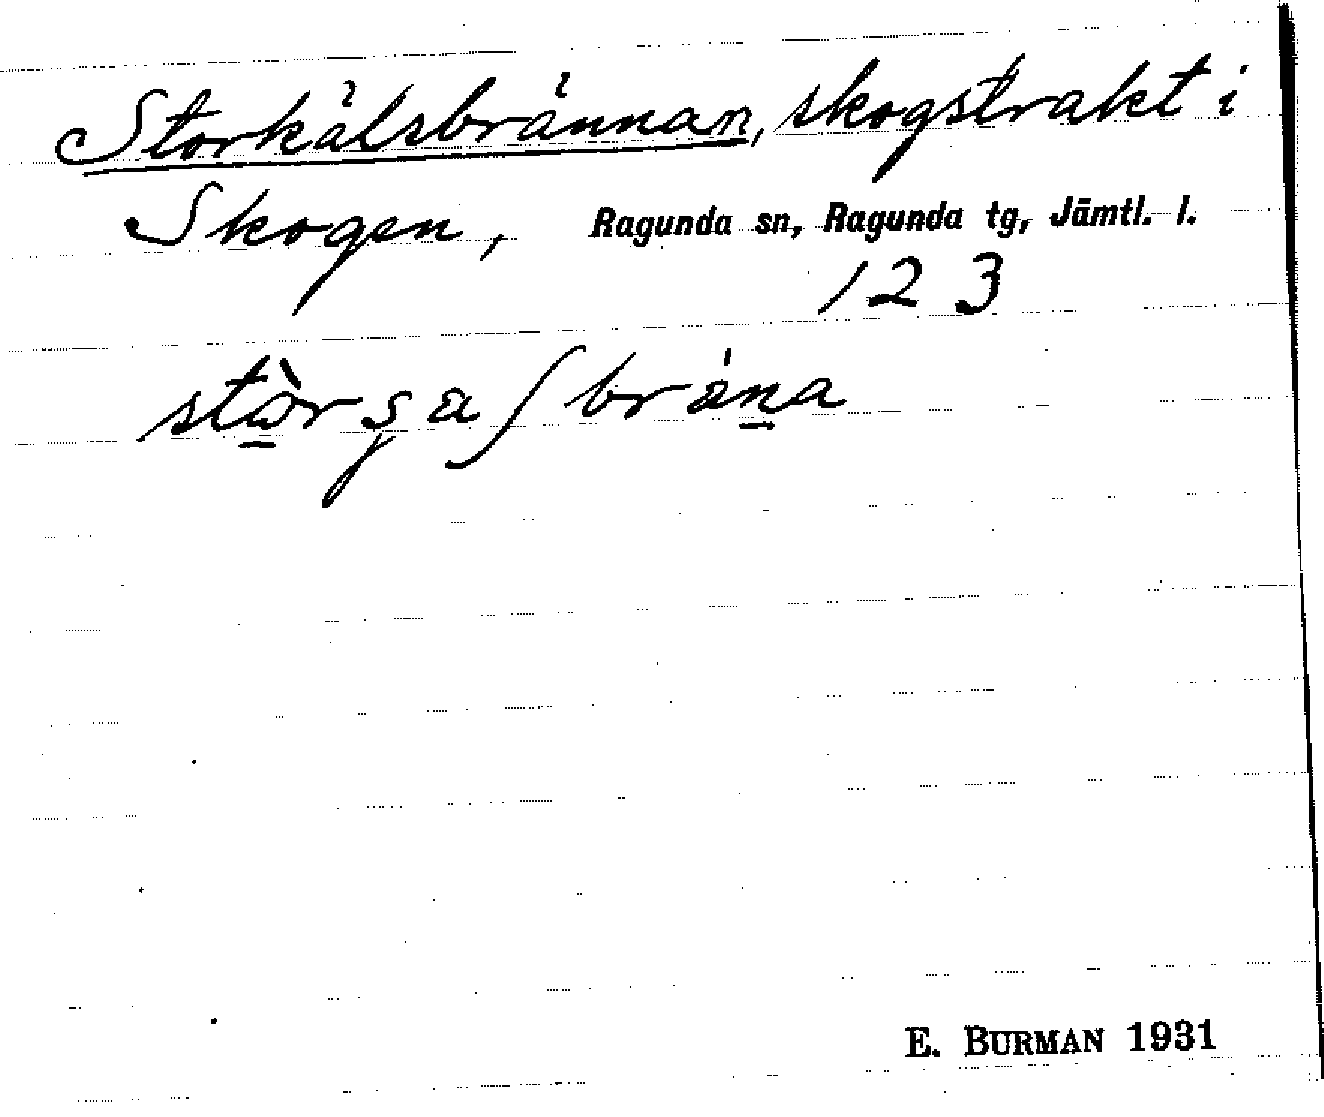 Storkälsbrännan, skogstrakt i
Skogen, Ragunda sn, Ragunda tg, Jämtl. l.
123
E. BURMAN 1931